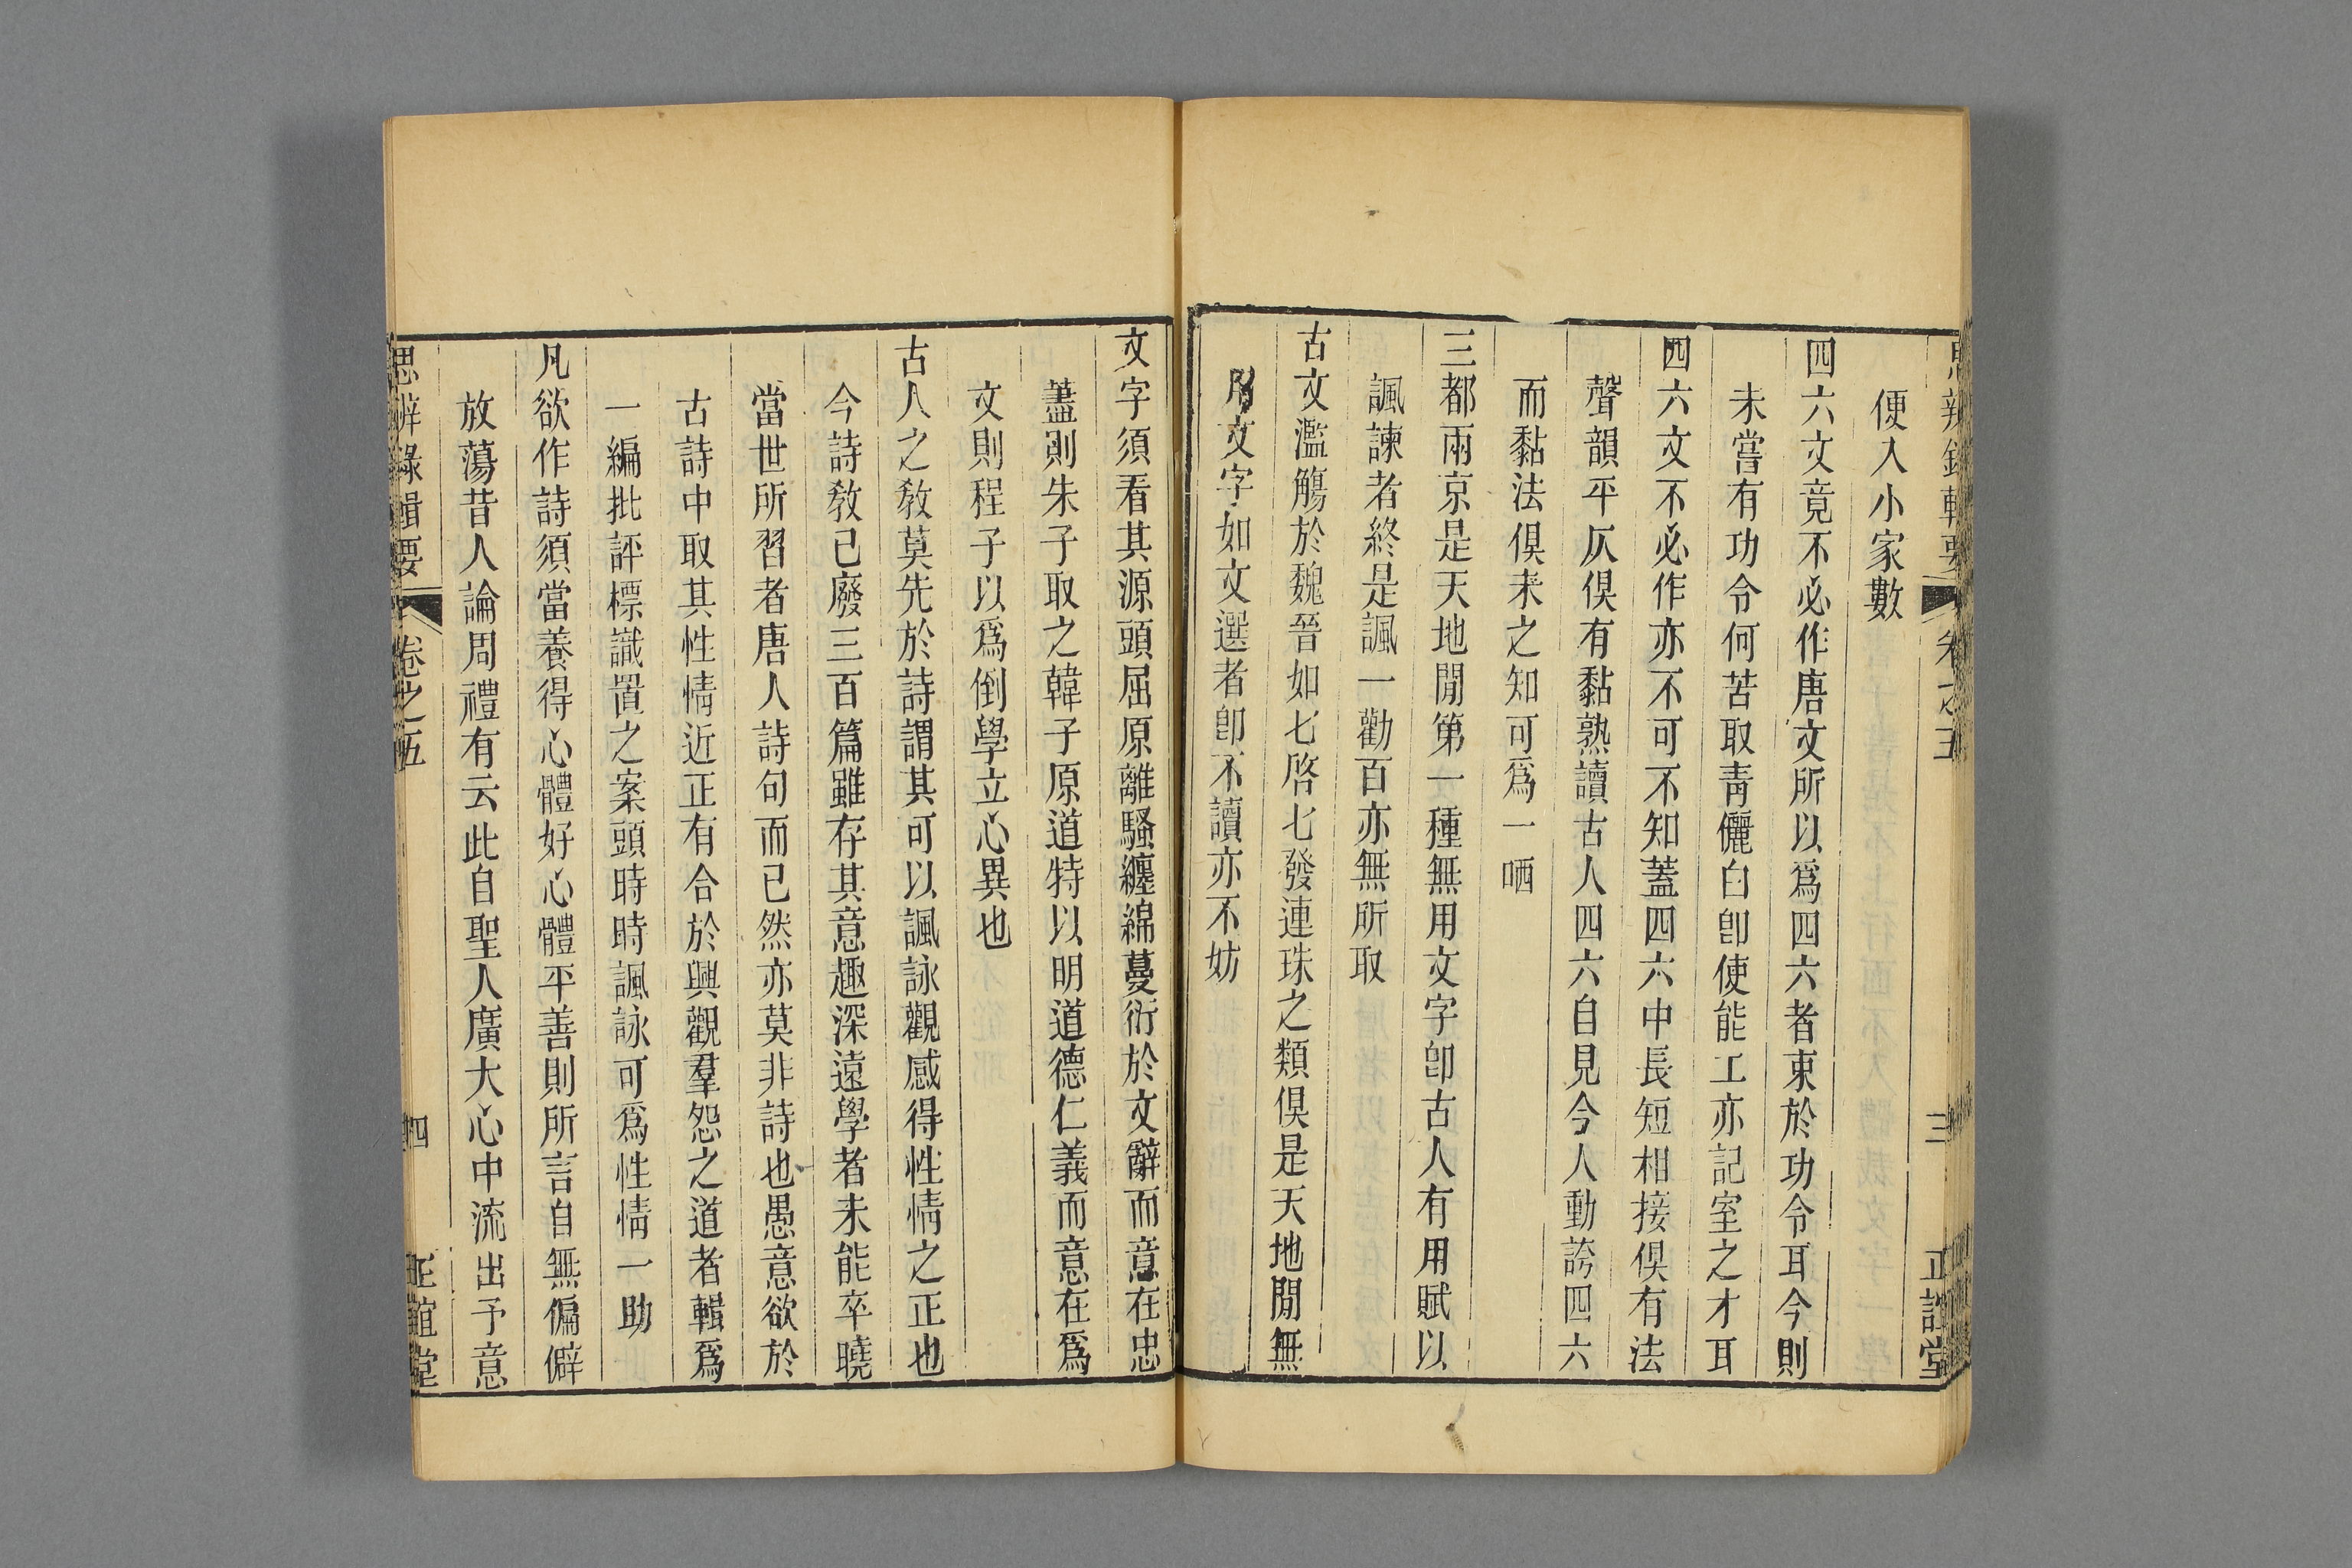 思辨錄輯要 卷之五 三 正誼堂
便入小家數
四六文竟不必作唐文所以爲四六者束於功令耳今則
未嘗有功令何苦取靑儷白卽使能工亦記室之才耳
四六文不必作亦不可不知蓋四六中長短相接俱有法
聲韻平仄俱有黏熟讀古人四六自見今人動誇四六
而黏法俱未之知可爲一哂
三都兩京是天地閒第一種無用文字卽古人有用賦以
諷諫者終是諷一勸百亦無所取
古文濫觴於魏晉如七啓七發連珠之類俱是天地閒無
用文字如文選者卽不讀亦不妨
文字須看其源頭屈原離騷纏綿蔓衍於文辭而意在忠
藎則朱子取之韓子原道特以明道德仁義而意在爲
文則程子以爲倒學立心異也
古人之敎莫先於詩謂其可以諷詠觀感得性情之正也
今詩敎已廢三百篇雖存其意趣深遠學者未能卒曉
當世所習者唐人詩句而已然亦莫非詩也愚意欲於
古詩中取其性情近正有合於興觀羣怨之道者輯爲
一編批評標識置之案頭時時諷詠可爲性情一助
凡欲作詩須當養得心體好心體平善則所言自無偏僻
放蕩昔人論周禮有云此自聖人廣大心中流出予意
思辨錄輯要 卷之五 四 正誼堂